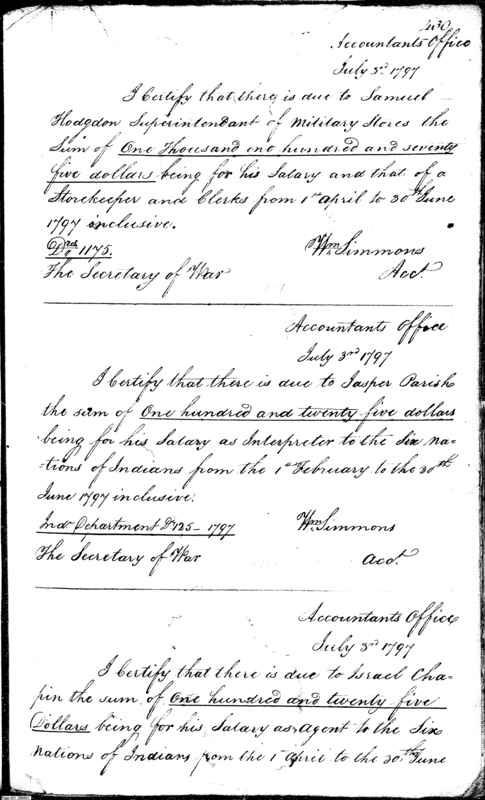 430
Accountants Office
July 3d 1797
I Certify that there is due to Samuel
Hodgdon Superintendant of Military Stores the
Sum of One Thousand one hundred and seventy
five dollars being for his Salary and that of a
Storekeeper and Clerks from 1st April to 30th June
1797 inclusive.
Drs 1175.
Wm Simmons
The Secretary of War
Acct.
Accountants Office
July 3rd 1797
I Certify that there is due to Jasper Parish
the sum of One hundred and twenty five dollars
being for his Salary as Interpreter to the Six na-
-tions of Indians from the 1st February to the 30th
June 1797 inclusive.
Indn Department Ds 125 – 1797
Wm Simmons
The Secretary of War
Acct.
Accountants Office
July 3rd 1797
I Certify that there is due to Israel Cha-
pin the sum of One hundred and twenty five
Dollars being for his Salary as Agent to the Six
Nations of Indians from the 1st April to the 30th June